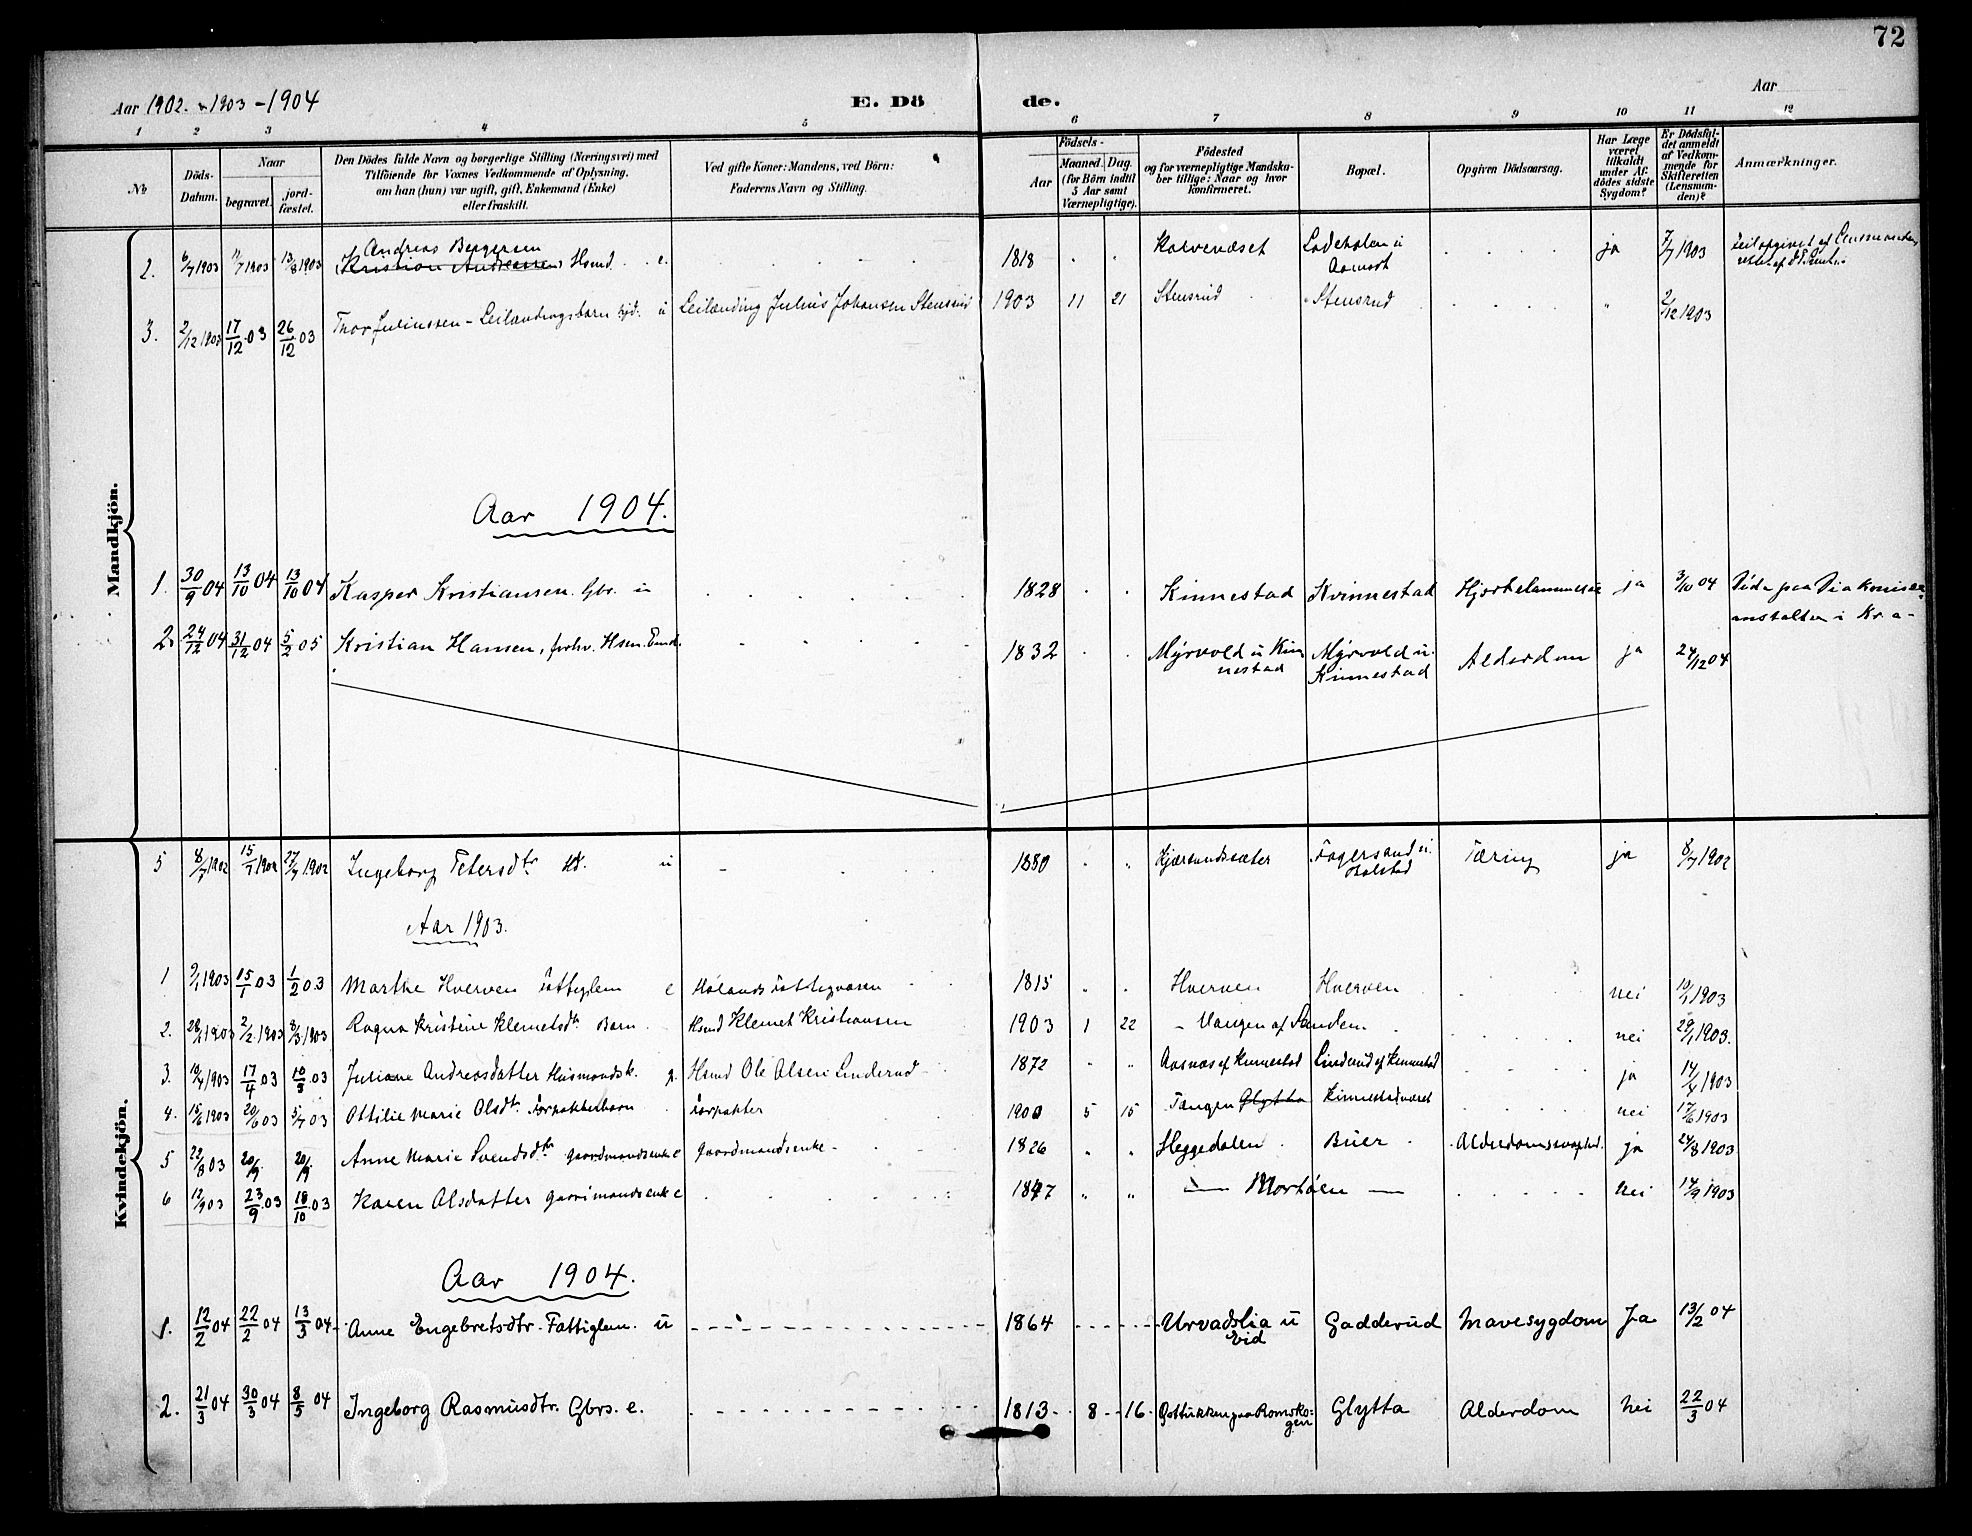 72
Aar 1902. & 1903 - 1904
E. Dö
de.
Aar
1 2 3 4 5 6 7 8 9 10 11 12
No
Döds-Datum.
Naar
begravet.
jord-fæstet.
Den Dödes fulde Navn og borgerlige Stilling (Næringsvei) med
Tilföiende for Voxnes Vedkommende af Oplysning.
om han (hun) var ugift, gift, Enkemand (Enke)
eller fraskilt.
Ved gifte Koner: Mandens, ved Börn:
Faderens Navn og Stilling.
Födsels-
Aar
Maaned. Dag.
(for Börn indtil
5 Aar samt
Værnepligtige).
Födested
og for værnepligtige Mandska-
ber tillige: Naar og hvor
konfirmeret.
Bopæl.
Opgiven Dödsaarsag.
Har Læge
været
tilkaldt
under Af-
dödes sidste
Sygdom?
Er Dödsfal-
det anmeldt
af Vedkom-
mende for
Skifteretten
(Lensman-
den)?
Anmærkninger.
Mandkjön.
2. 6/7 1903 11/7 1903 13/8 1903 Andreas Bergersen
Kristian Andreassen Hsmd. e. 1818 Kolvenæset Ladeholen u Aamodt ja 7/7 1903 feilopgivet af Lensmanden
3. 2/12 1903 17/12 03 26/12 03 Thor Juliussen - Leilændingsbarn u Leilænding Julius Johansen Stensrud 1903 11 21 Stensrud Stensrud " 2/12 1903
Aar 1904.
1. 30/9 04 13/10 04 13/10 04 Kasper Kristiansen. Gbr. u 1828 Kinnestad Kvinnestad ja 3/10 04 Døde paa Diakonisse-
anstalten i Kr.a-
2. 24/12 04 31/12 04 5/2 05 Kristian Hansen, forhv. Hsm. Enkm. 1832 Myrvold u Kin
nestad Myrvold u.
Kinnestad Alderdom ja 24/12 04
Kvindekjön.
5 8/7 1902 15/7 1902 27/7 1902 Ingeborg Petersdtr u 1880 Kjærsundsæter Fagersand u.
Bolstad Tæring ja 8/7 1902
Aar 1903.
1 9/1 1903 15/1 03 1/2 03 Marthe Hverven Fattiglem e Hølands Fattigvæsen 1815 Hverven Hverven nei 10/1 1903
2. 28/1 1903 2/2 1903 8/3 1903 Ragna Kristine Klemetsdtr Barn Hsmd Klemet Kristiansen 1903 1 22 - Vangen af Sanden nei 29/1 1903.
3. 10/4 1903 17/4 03 10/5 03 Juliane Andreasdatter Husmandsk. g. Hsmd Ole Olsen Linderud 1872 Aasnæs af Kinnestad Linderud af Kinnestad ja 14/4 1903
4. 15/6 1903 20/6 03 5/7 03 Ottilie Marie Olsdtr. Forpakterbarn Forpakter 1900 5 15 Tangen Glytta Kinnestadværet nei 17/6 1903
5 22/8 03 20/9. 20/9. Anne Marie Svendsdtr Gaardmandsenke e Gaardmandsenke - 1826 " " Heggedalen Buer Alderdomssvaghed. ja 24/8 1903
6 12/9 03 23/9 03 18/10 03 Karen Olsdatter Gaardmandsenke e 1847 " " — Mortøen — nei 14/9 1903
Aar 1904.
1. 12/2 04 22/2 04 13/3 04 Anne Engebretsdtr. Fattiglem. u 1864 Urvadslia u
Eid Gadderud Mavesygdom Ja 13/2 04
2. 21/3 04 30/3 04 8/5 04 Ingeborg Rasmusdtr. Gbrs. e. 1813 8 16 paa Romsko-
gen Glytta Alderdom nei 22/3 04